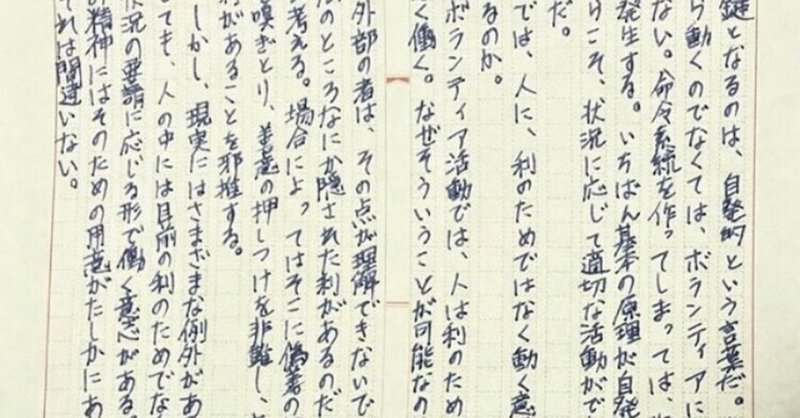 鍵となるのは、自発的という言葉だ。
ら動くのでなくては、ボランティアに
ない。命令系統を作ってしまっては、
発生する。いちばん基本の原理が自発
らこそ、状況に応じて適切な活動がで
だ。
では、人に、利のためではなく動く意
るのか。
ボランティア活動では、人は利のため
く働く。なぜそういうことが可能なの
外部の者は、その点が理解できないで
のところなにか隠された利があるのだ
考える。場合によってはそこに偽善の
嗅ぎとり、善意の押しつけを非難し、
があることを邪推する。
しかし、現実にはさまざまな例外があ
ても、人の中には目前の利のためでな
状況の要請に応じる形で働く意志がある。
精神にはそのための用意がたしかにあ
それは間違いない。